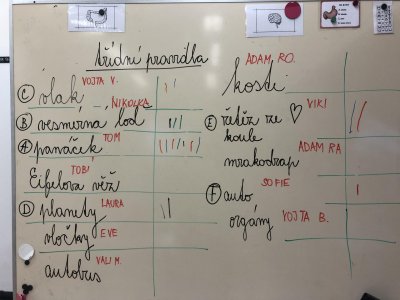 třídní pravidla
VOJTA V.
C vlak
NIKOLKA
B vesmírná loď
A panáček TOM
TOBI
Eiffelova věž
D planety LAURA
vločky EVE
autobus VALI M.
ADAM RO.
kosti
E řetěz ze VIKI
koule
mrakodrap ADAM RA
SOFIE
F auto
orgány VOJTA B.